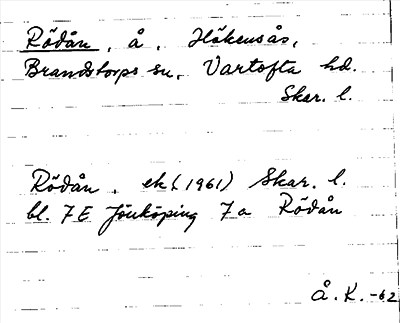 Rödån, å, Hökensås,
Brandstorps sn, Vartofta hd.
Skar. l.
Rödån, ek (1961) Skar. l.
bl. 7E Jönköping 7a Rödån
Å.K. -62